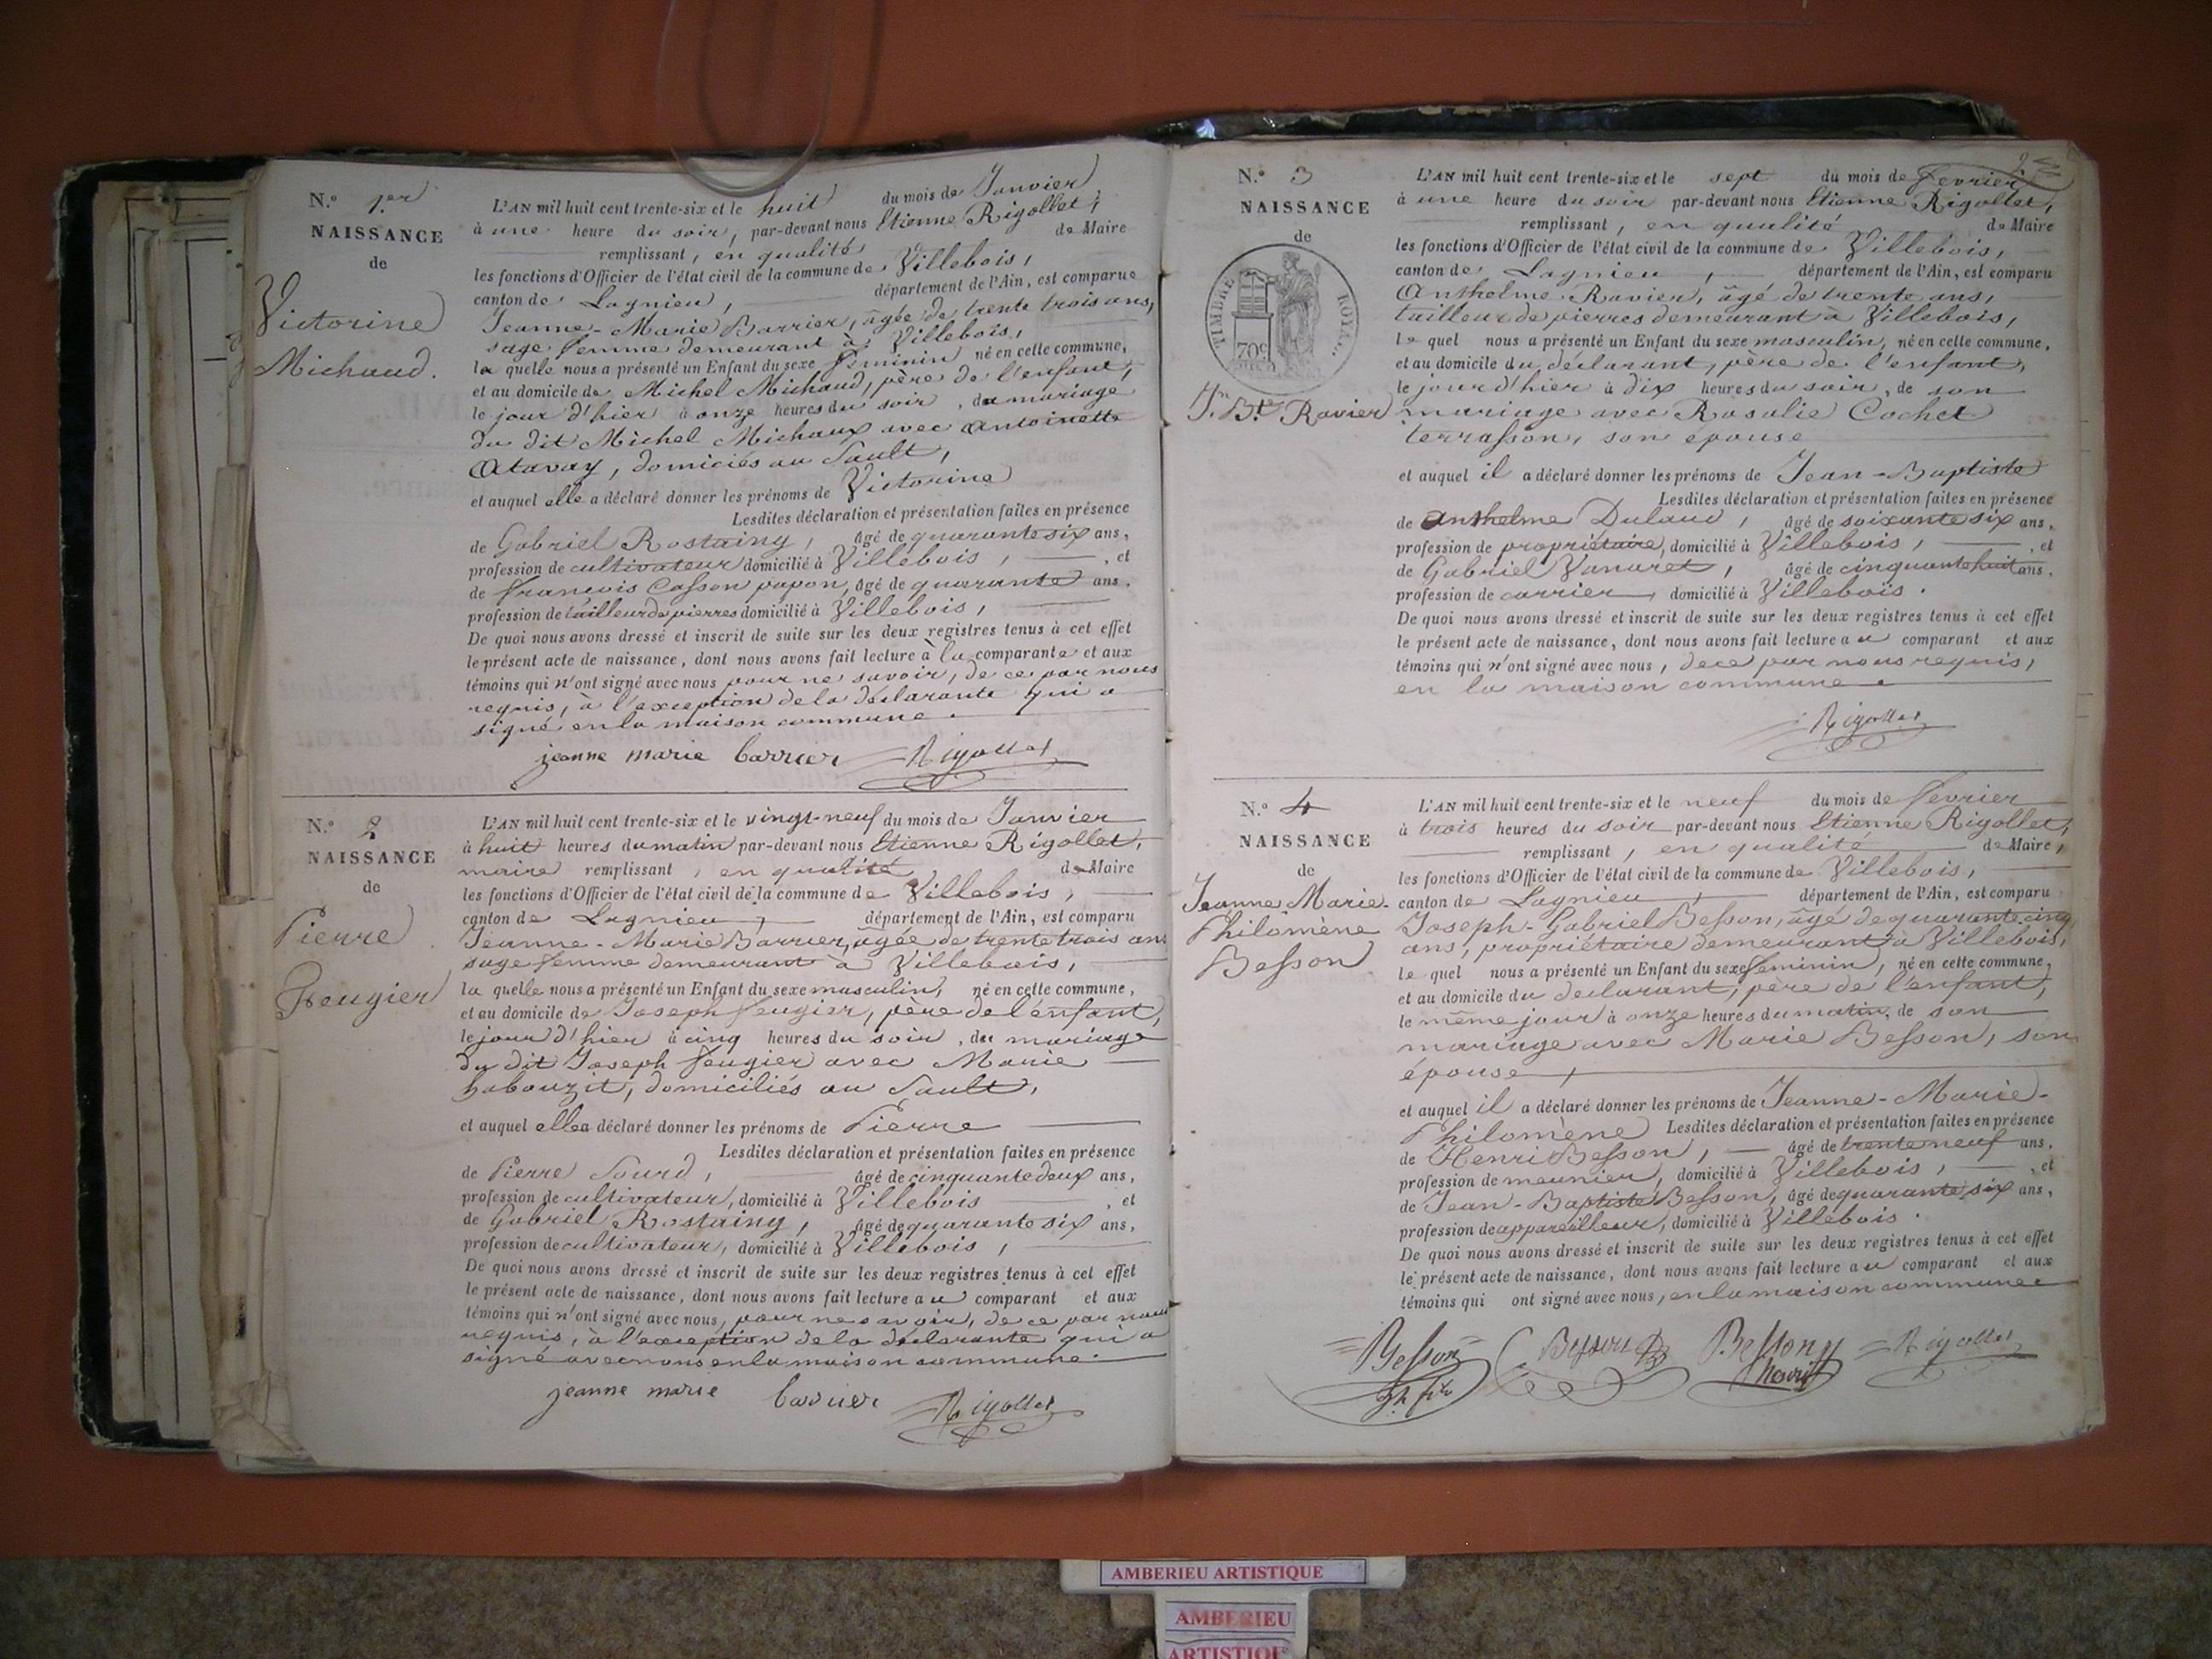 N.° 1.er
NAISSANCE
de
Victorine
Michaud.
L'AN mil huit cent trente-six et le huit du mois de Janvier,
à une heure du soir, par-devant nous Etienne Rigollet,
remplissant, en qualité de Maire
les fonctions d'Officier de l'état civil de la commune de Villebois,
canton de Lagnieu, département de l'Ain, est comparue
Jeanne-Marie Barrier, âgée de trente trois ans,
sage femme demeurant à Villebois,
la quelle nous a présenté un Enfant du sexe féminin né en cette commune,
et au domicile de Michel Michaud, père de l'enfant,
le jour d'hier à onze heures du soir, du mariage
du dit Michel Michaux avec Antoinette
Atavay, domiciés au Sault,
et auquel elle a déclaré donner les prénoms de Victorine
Lesdites déclaration et présentation faites en présence
de Gabriel Rostaing, âgé de quarante six ans,
profession de cultivateur domicilié à Villebois, et
de francois Casson papon, âgé de quarante ans,
profession de tailleur de pierres domicilié à Villebois,
De quoi nous avons dressé et inscrit de suite sur les deux registres tenus à cet effet
le présent acte de naissance, dont nous avons fait lecture à la comparante et aux
témoins qui n'ont signé avec nous pour ne savoir, de ce par nous
requis, à l'exception de la déclarante qui a
signé en la maison commune.
jeanne marie barrier Rigollet
N.° 2
NAISSANCE
de
Pierre
Feugier
L'AN mil huit cent trente-six et le vingt-neuf du mois de Janvier
à huit heures du matin par-devant nous Etienne Rigollet,
maire remplissant, en qualité de Maire
les fonctions d'Officier de l'état civil de la commune de Villebois,
canton de Lagnieu, département de l'Ain, est comparu
Jeanne-Marie Barrier, âgée de trente trois ans
sage femme demeurant à Villebois,
la quelle nous a présenté un Enfant du sexe masculin, né en cette commune,
et au domicile de Joseph feugier, père de l'enfant,
le jour d'hier à cinq heures du soir, du mariage
du dit Joseph feugier avec Marie
habouzit, domiciliés au Sault,
et auquel elle a déclaré donner les prénoms de Pierre
Lesdites déclaration et présentation faites en présence
de Pierre Sourd, âgé de cinquante deux ans,
profession de cultivateur, domicilié à Villebois, et
de Gabriel Rostaing, âgé de quarante six ans,
profession de cultivateur, domicilié à Villebois,
De quoi nous avons dressé et inscrit de suite sur les deux registres tenus à cet effet
le présent acte de naissance, dont nous avons fait lecture au comparant et aux
témoins qui n'ont signé avec nous, pour ne savoir, de ce par nous
requis, à l'exception de la déclarante qui a
signé avec nous en la maison commune.
jeanne marie barrier Rigollet
2
N.° 3
NAISSANCE
de
TIMBRE ROYAL
70c
Jn. Bte Ravier
L'AN mil huit cent trente-six et le sept du mois de Fevrier
à une heure du soir par-devant nous Etienne Rigollet,
remplissant, en qualité de Maire
les fonctions d'Officier de l'état civil de la commune de Villebois,
canton de Lagnieu, département de l'Ain, est comparu
Anthelme Ravier, âgé de trente ans,
tailleur de pierres demeurant à Villebois,
le quel nous a présenté un Enfant du sexe masculin, né en cette commune,
et au domicile du déclarant, père de l'enfant,
le jour d'hier à dix heures du soir, de son
mariage avec Rosalie Cochet
terrasson, son épouse
et auquel il a déclaré donner les prénoms de Jean-Baptiste
Lesdites déclaration et présentation faites en présence
de Anthelme Dulaud, âgé de soixante six ans,
profession de propriétaire, domicilié à Villebois, et
de Gabriel Vanaret, âgé de cinquante huit ans,
profession de carrier, domicilié à Villebois.
De quoi nous avons dressé et inscrit de suite sur les deux registres tenus à cet effet
le présent acte de naissance, dont nous avons fait lecture au comparant et aux
témoins qui n'ont signé avec nous, de ce par nous requis,
en la maison commune.
Rigollet
N.° 4
NAISSANCE
de
Jeanne Marie-
Philomène
Besson
L'AN mil huit cent trente-six et le neuf du mois de fevrier
à trois heures du soir par-devant nous Etienne Rigollet,
remplissant, en qualité de Maire,
les fonctions d'Officier de l'état civil de la commune de Villebois,
canton de Lagnieu, département de l'Ain, est comparu
Joseph-Gabriel Besson, âgé de quarante cinq
ans, propriétaire demeurant à Villebois,
le quel nous a présenté un Enfant du sexe féminin, né en cette commune,
et au domicile du déclarant, père de l'enfant,
le même jour à onze heures du matin, de son
mariage avec Marie Besson, son
épouse,
et auquel il a déclaré donner les prénoms de Jeanne-Marie-
Philomène Lesdites déclaration et présentation faites en présence
de Henri Besson, âgé de trente neuf ans,
profession de meunier, domicilié à Villebois, et
de Jean-Baptiste Besson, âgé de quarante six ans,
profession de appareilleur, domicilié à Villebois.
De quoi nous avons dressé et inscrit de suite sur les deux registres tenus à cet effet
le présent acte de naissance, dont nous avons fait lecture au comparant et aux
témoins qui ont signé avec nous, en la maison commune
Besson Besson Besson Rigollet
henri
AMBERIEU ARTISTIQUE
AMBERIEU
ARTISTIQUE